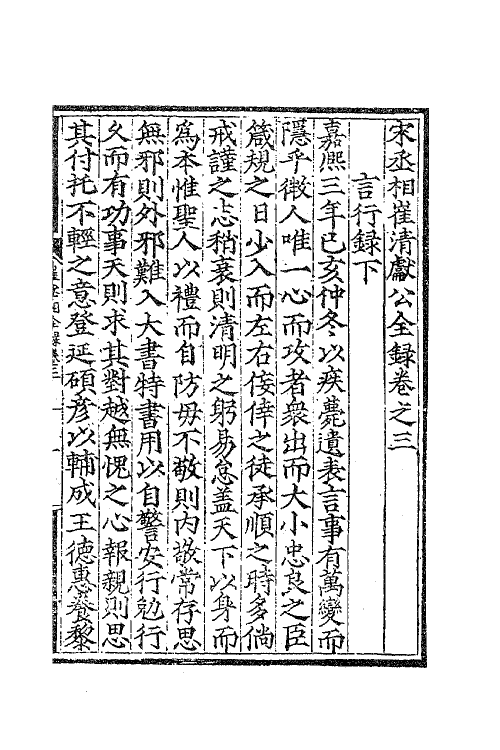 宋丞相崔清獻公全録卷之三
言行録下
嘉熙三年已亥仲冬以疾薨遺表言事有萬變而
隱乎微人唯一心而攻者衆出而大小忠良之臣
箴規之日少入而左右佞倖之徒承順之時多倘
戒謹之志稍衰則清明之躬易怠盖天下以身而
爲本惟聖人以禮而自防毋不敬則内敬常存思
無邪則外邪難入大書特書用以自警安行勉行
久而有功事天則求其對越無愧之心報親則思
其付托不輕之意登延碩彦以輔成王德惠養黎